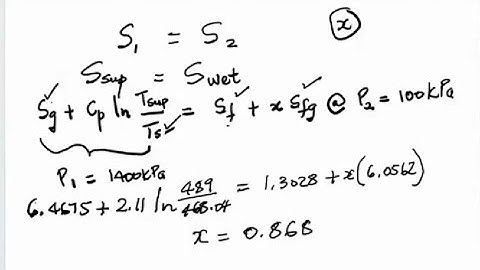 S₁ = S₂
x
S_sup = S_wet
S_g + C_p ln T_sup/T_s = S_f + x S_fg @ P₂ = 100kPa
P₁ = 1400kPa
6.4675 + 2.11 ln 489/468.04 = 1.3028 + x(6.0562)
x = 0.868